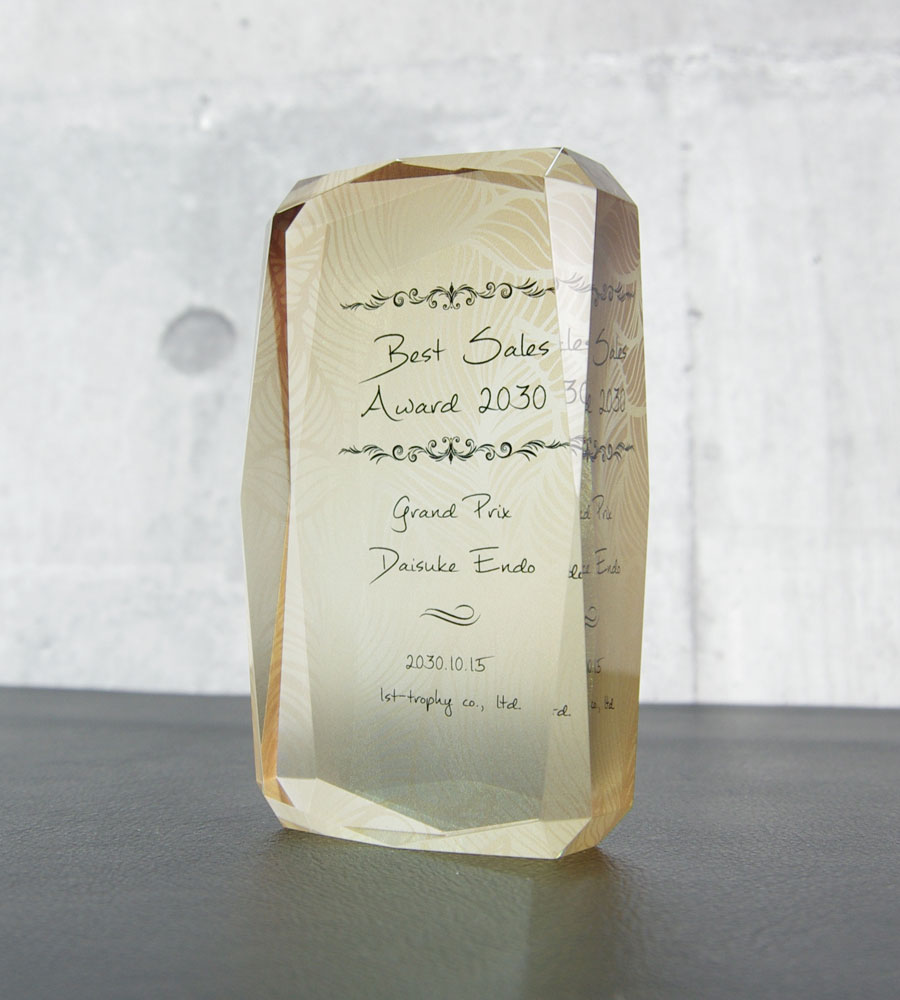 Best Sales
Award 2030
Grand Prix
Daisuke Endo
2030.10.15
1st-trophy co., ltd.